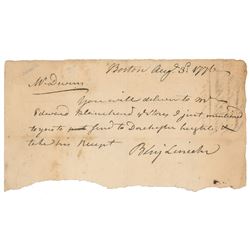 Boston Augt. 3d. 1776
Mr. Devens
You will deliver to Mr
Edward Blanchard I just mentioned
to you to send to Dorchester heights, &
take his Receipt
Benj Lincoln